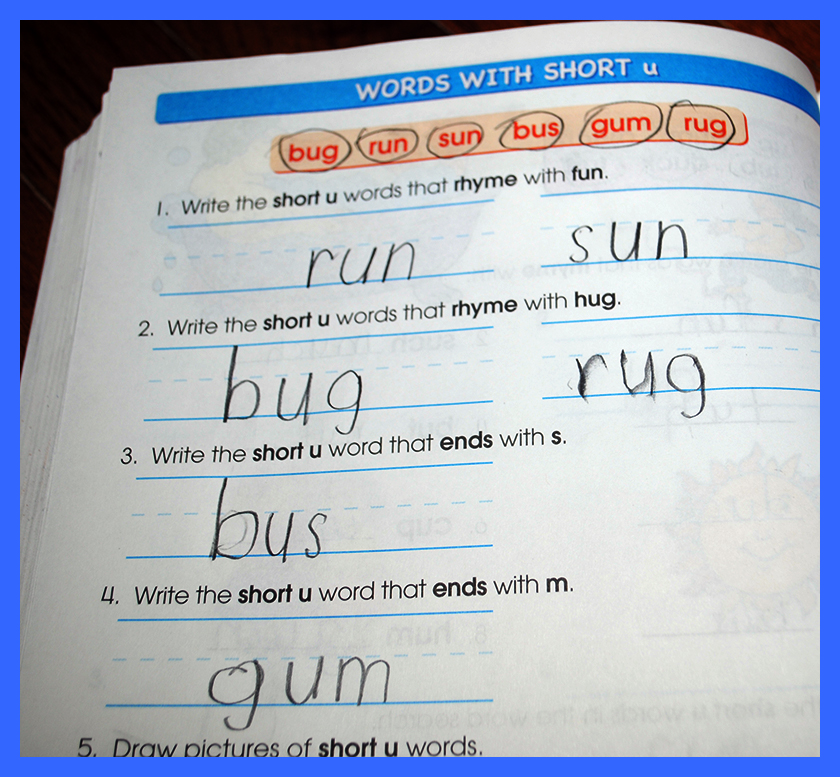 WORDS WITH SHORT u
bug run sun bus gum rug
1. Write the short u words that rhyme with fun.
run sun
2. Write the short u words that rhyme with hug.
bug rug
3. Write the short u word that ends with s.
bus
4. Write the short u word that ends with m.
gum
5. Draw pictures of short u words.